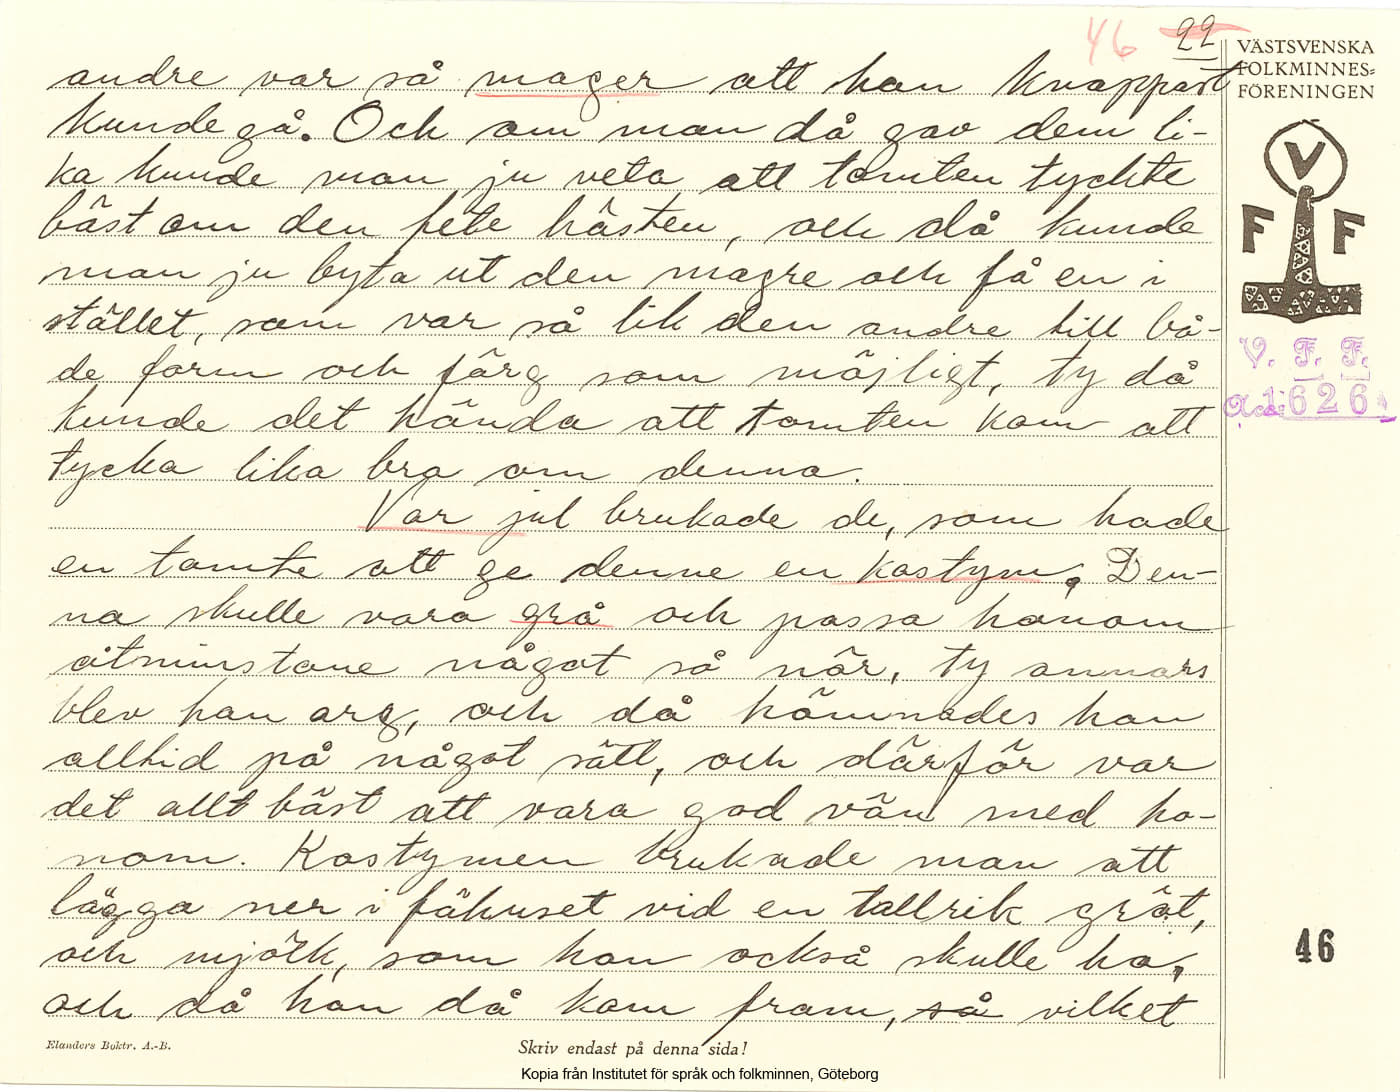 46 22
VÄSTSVENSKA
FOLKMINNES=
FÖRENINGEN
andre var så mager att han knappast
kunde gå. Och om man då gav dem li-
ka kunde man ju veta att tomten tyckte
bäst om den fete hästen, och då kunde
man ju byta ut den magre och få en i
stället, som var så lik den andre till bå-
de form och färg som möjligt, ty då
kunde det hända att tomten kom att
tycka lika bra om denna.
Var jul brukade de, som hade
en tomte att ge denne en kostym. Den-
na skulle vara grå och passa honom
åtminstone något så när, ty annars
blev han arg, och då hämnades han
alltid på något sätt, och därför var
det allt bäst att vara god vän med ho-
nom. Kostymen brukade man att
lägga ner i fähuset vid en tallrik gröt,
och mjölk, som han också skulle ha,
och då han då kom fram, så vilket
V
F F
V. F. F.
1626
46
Elanders Boktr. A.-B.
Skriv endast på denna sida!
Kopia från Institutet för språk och folkminnen, Göteborg